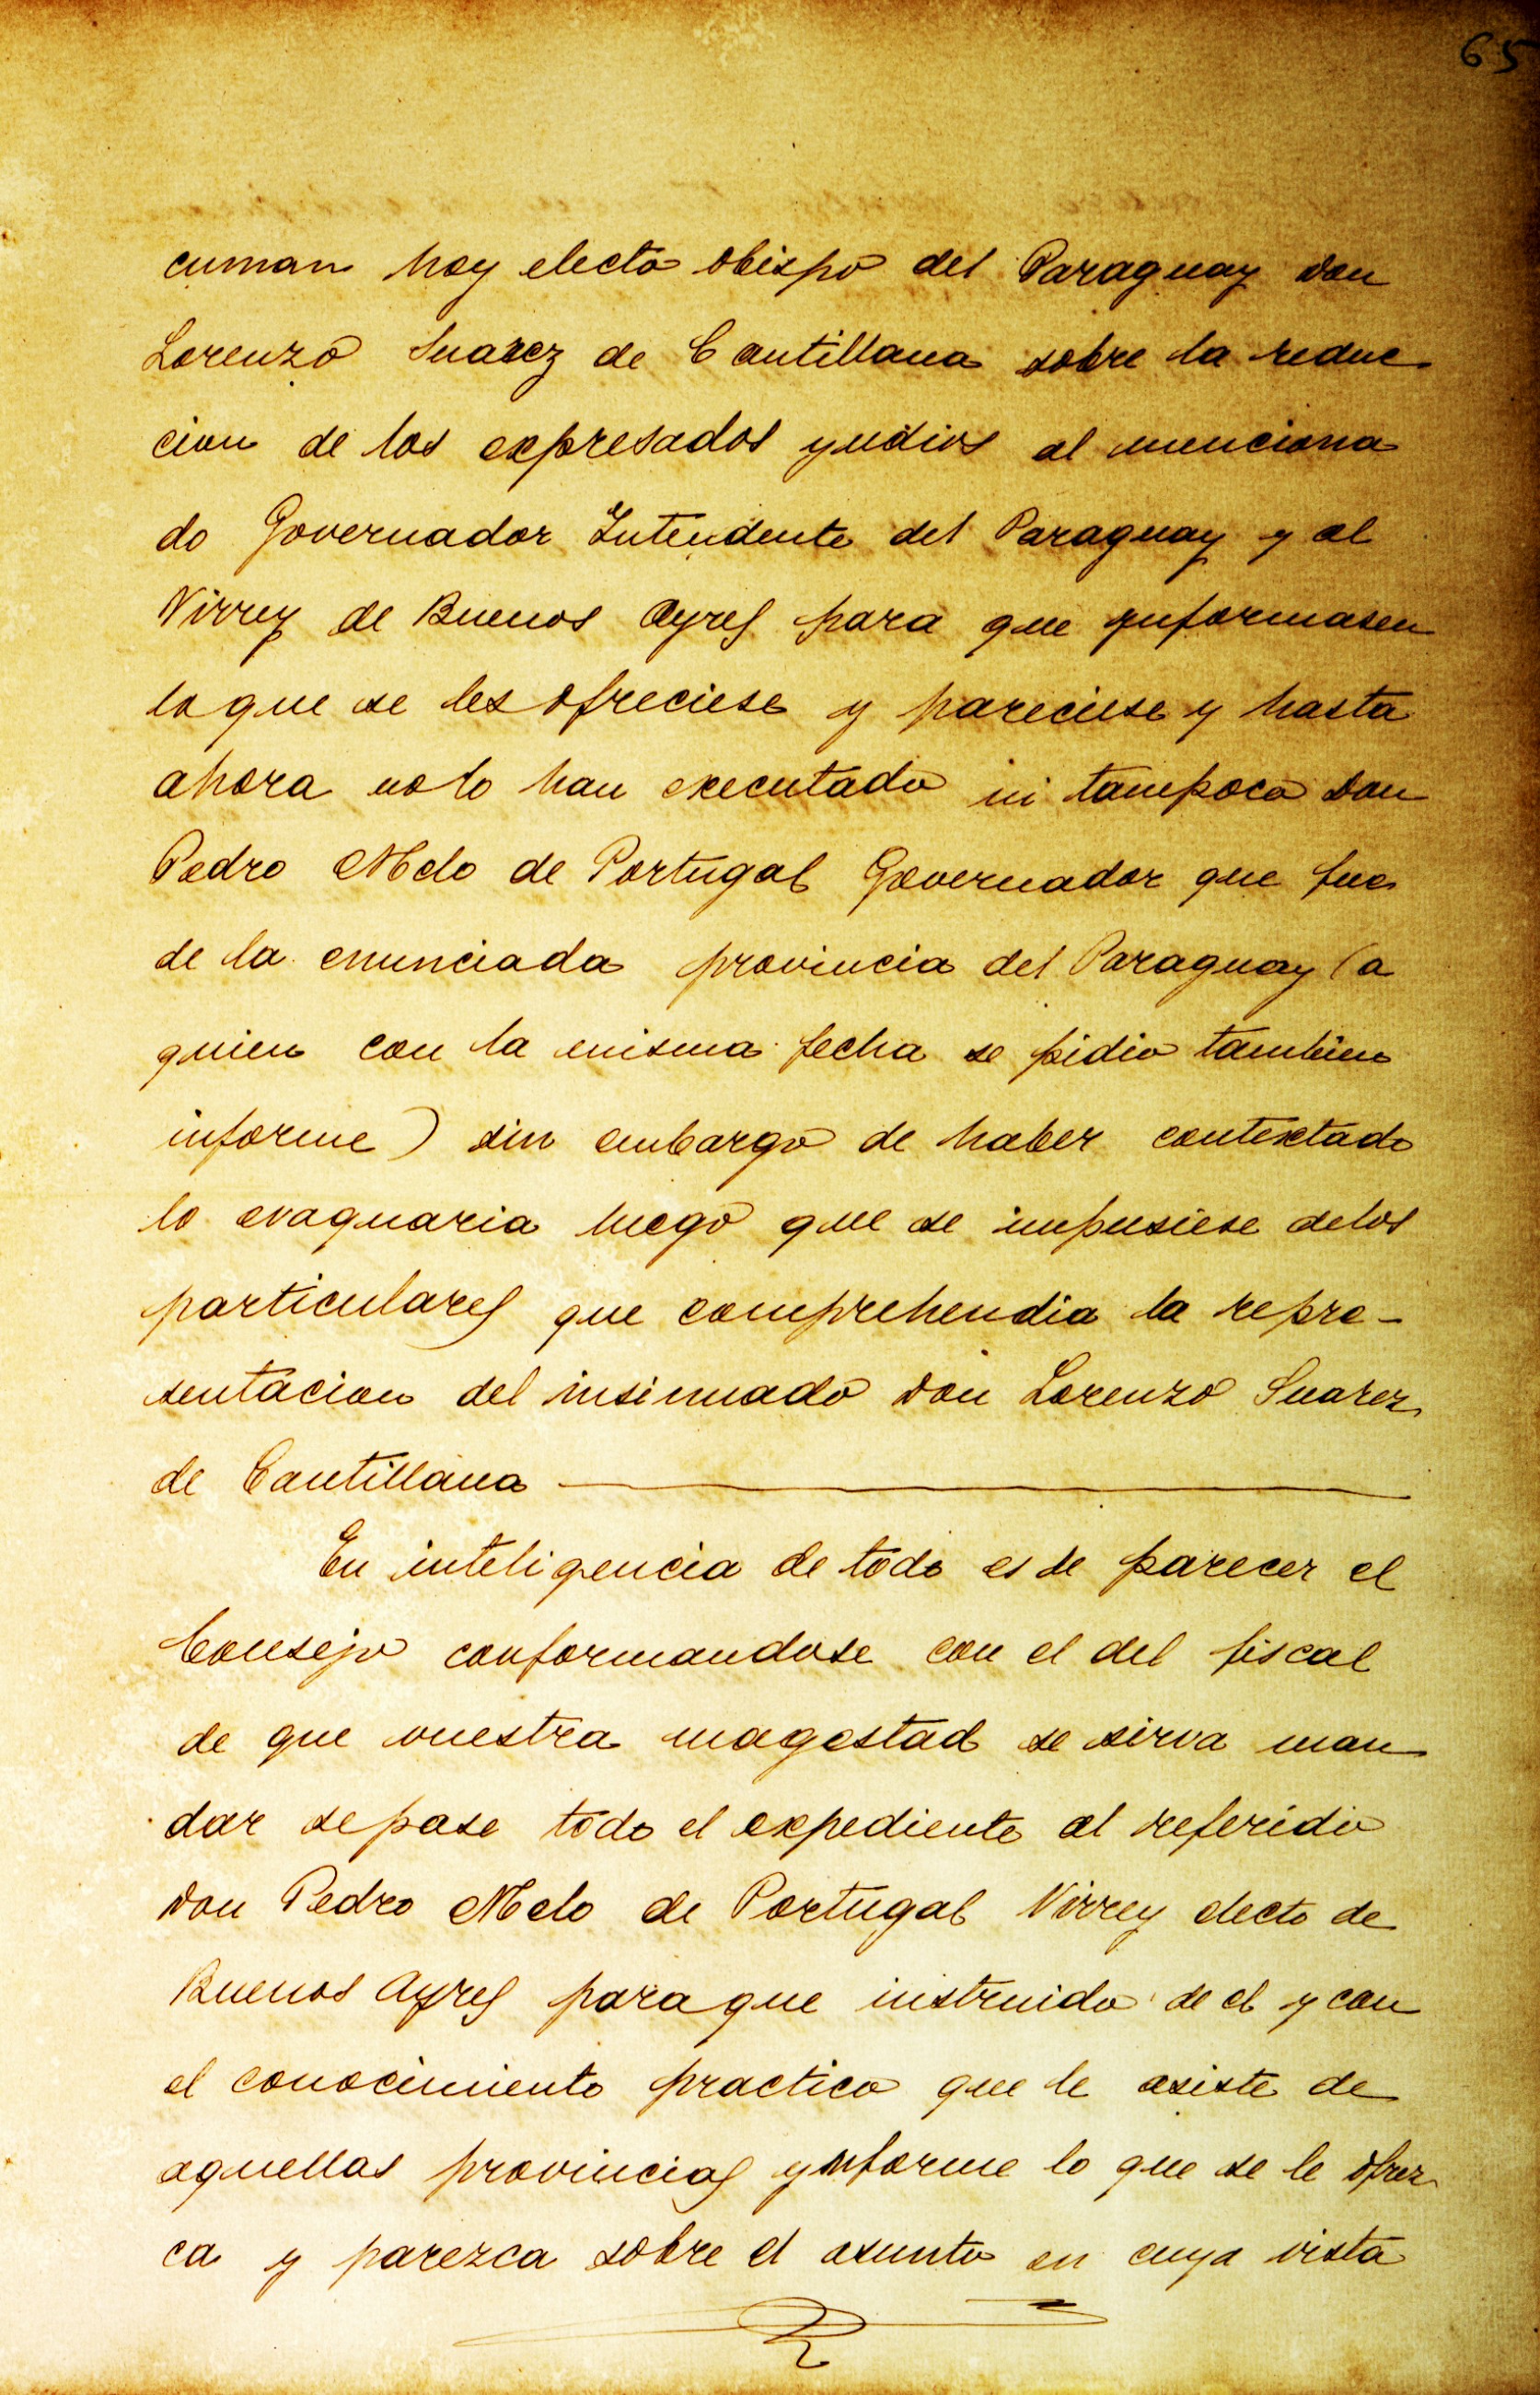 65
cuman hoy electo obispo del Paraguay don
Lorenzo Suarez de Cantillana sobre la reduc
cion de los expresados yndios al menciona
do Governador Intendente del Paraguay y al
Virrey de Buenos Ayres para que ynformasen
lo que se les ofreciese y pareciese y hasta
ahora no lo han executado ni tampoco don
Pedro Melo de Portugal Governador que fue
de la enunciada provincia del Paraguay (a
quien con la misma fecha se pidio tambien
informe) sin embargo de haber contextado
lo evaquaria luego que se impusiese delos
particulares que comprehendia la repre-
sentacion del insinuado don Lorenzo Suarez
de Cantillana
En inteligencia de todo es de parecer el
Consejo conformandose con el del fiscal
de que vuestra magestad se sirva man
dar sepase todo el expediente al referido
don Pedro Melo de Portugal Virrey electo de
Buenos Ayres para que instruido de el y con
el conocimiento practico que le asiste de
aquellas provincias ynforme lo que se le ofrez
ca y parezca sobre el asunto en cuya vista